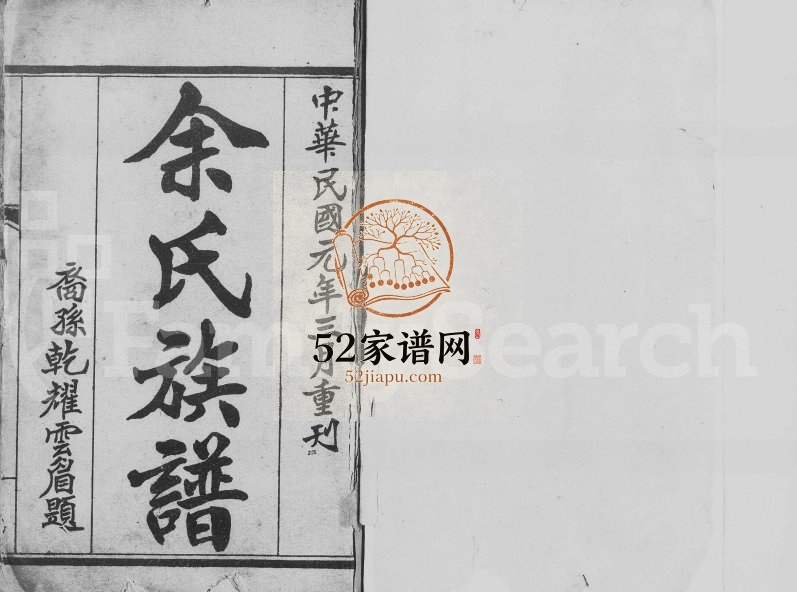 中華民國元年三月重刊
余氏族譜
裔孫乾耀雲眉題
FamilySearch
52家谱网
52jiapu.com